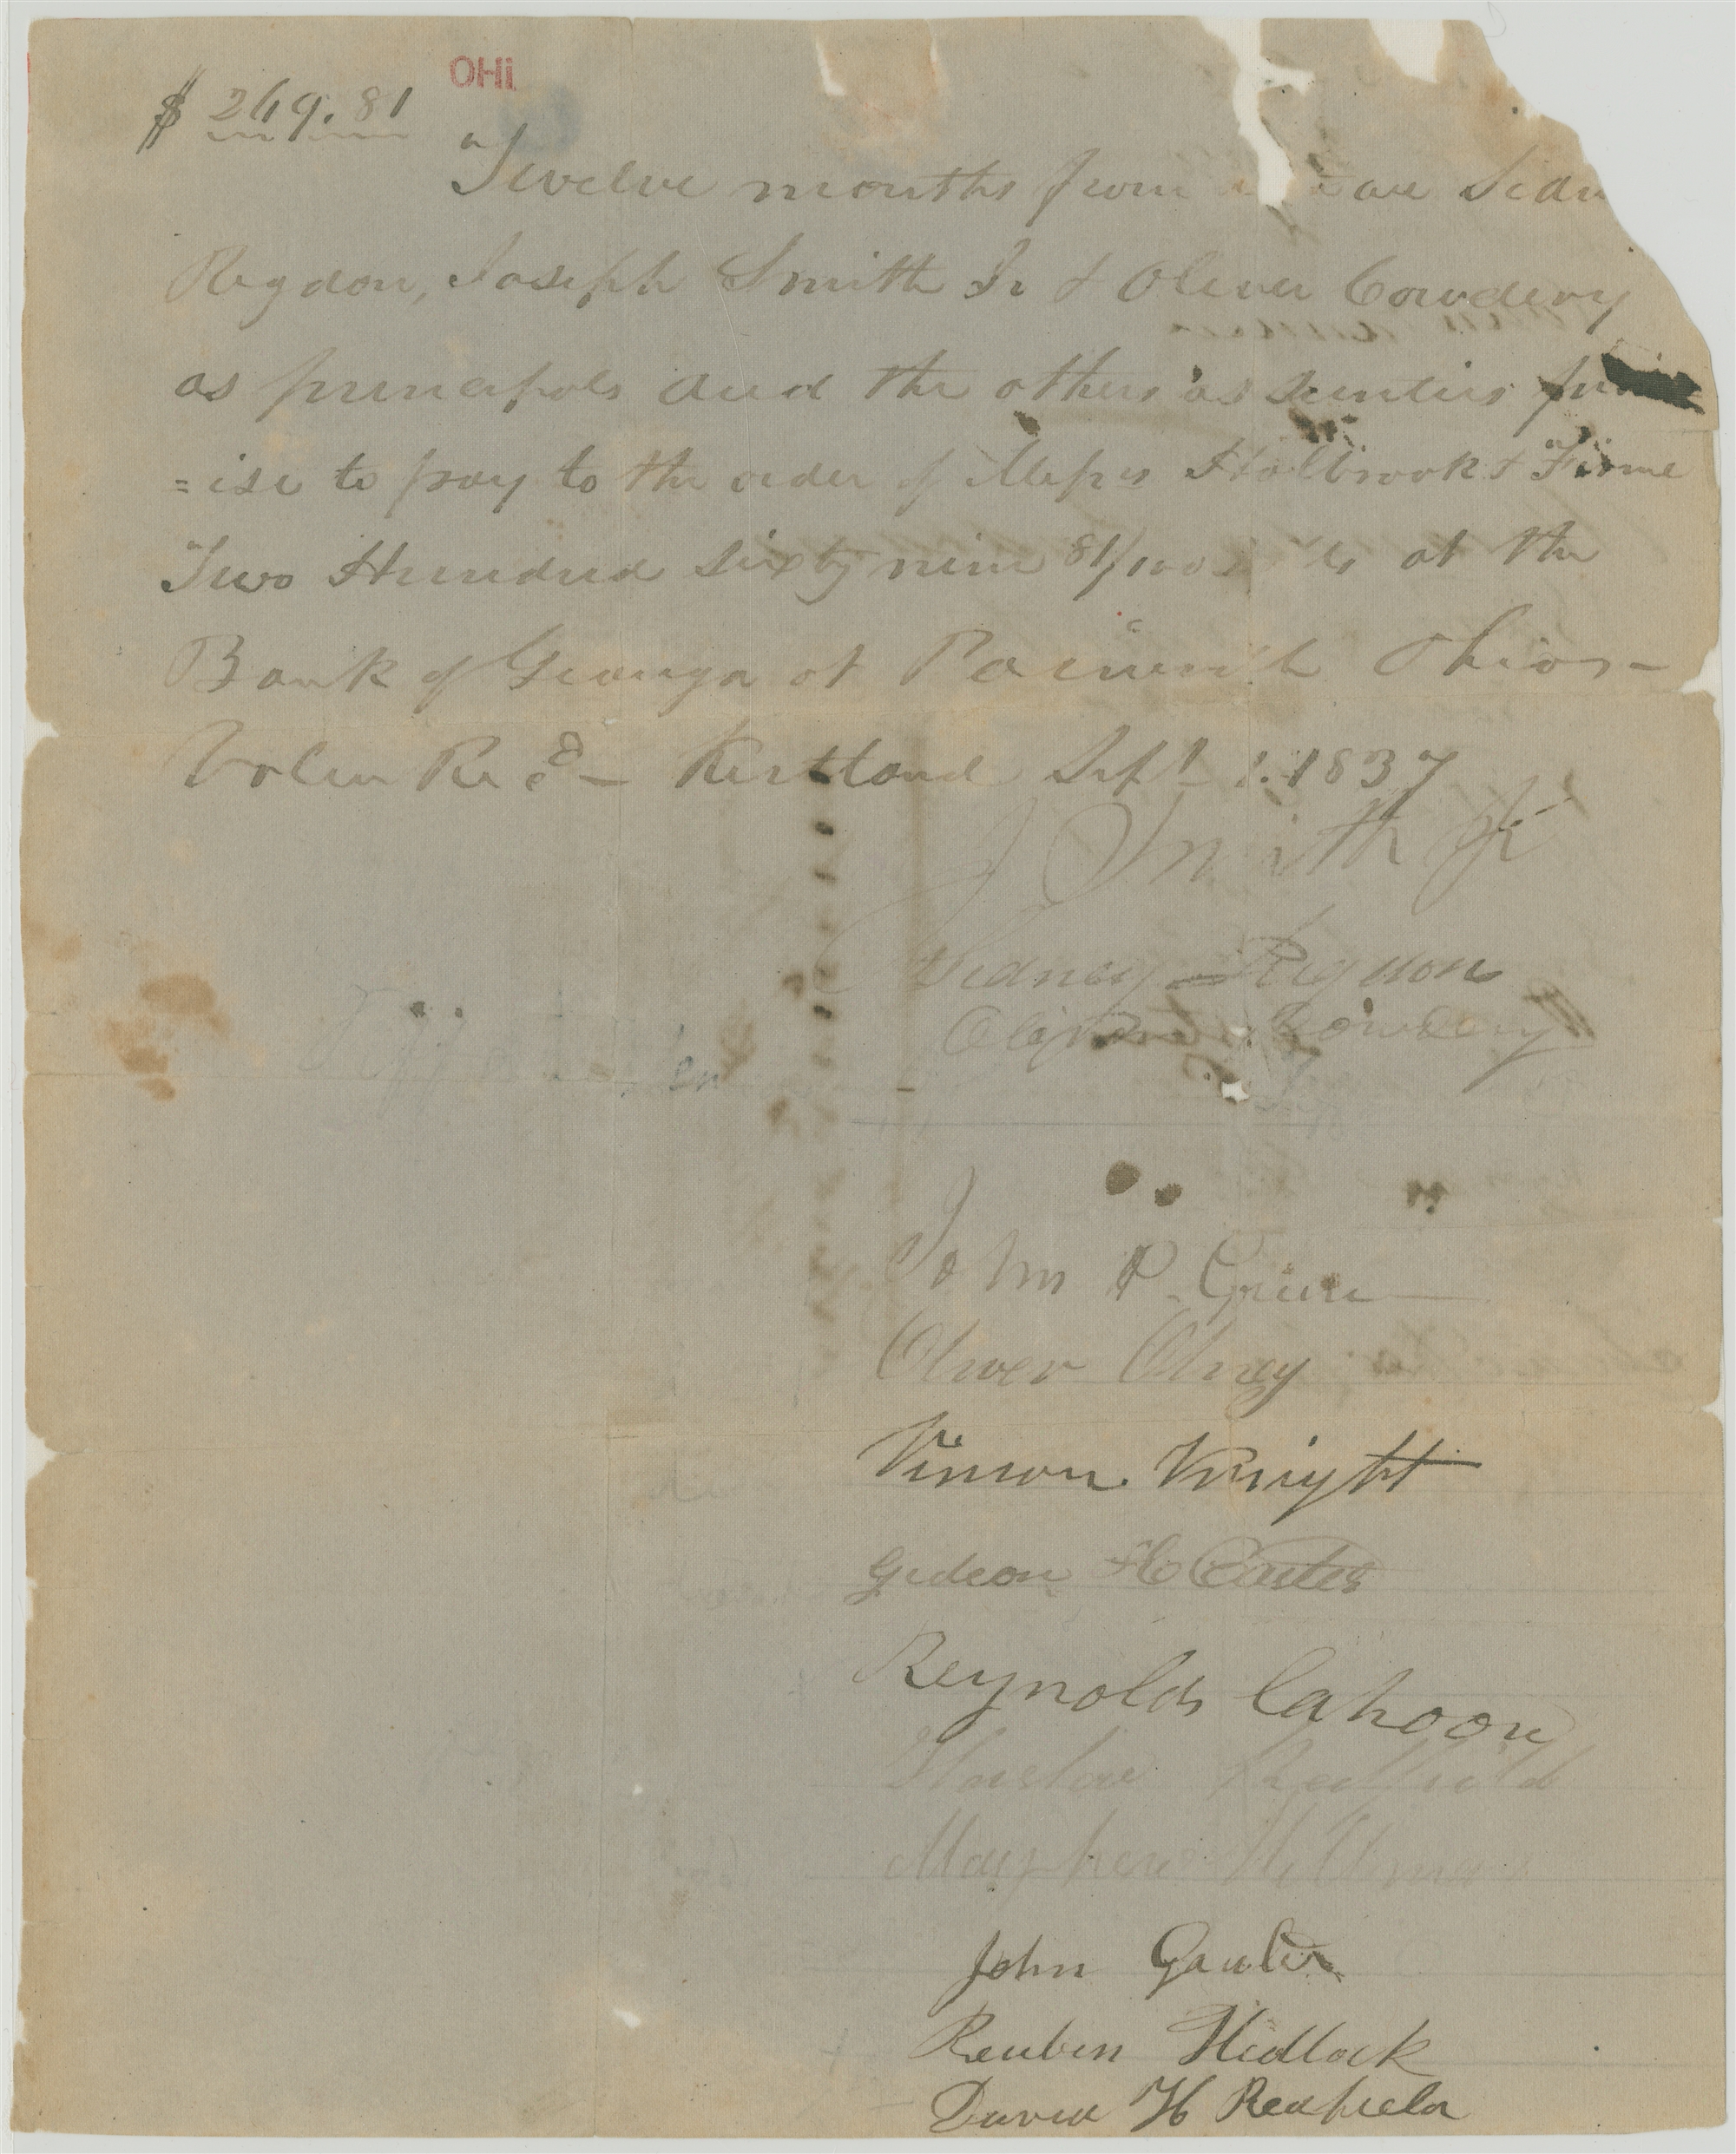 OHi.
$ 269.81
Twelve months from we Sidn
Rigdon, Joseph Smith Jr & Oliver Cowdery
as principals and the others as sureties
=ise to pay to the order of Messrs Holbrook & Firme
Two Hundred Sixty nine 81/100 at the
Bank of Geauga at Painsvill Ohio -
Value Recd - Kirtland Sept 1. 1837
J Smith Jr
Sidney Rigdon
Oliver Cowdery
John P. Green
Oliver Olney
Vinson Knight
Gideon H Carter
Reynolds Cahoon
Harlow Redfield
Mayhew Hillman
John Gaylor
Reuben Hedlock
David H Redfield